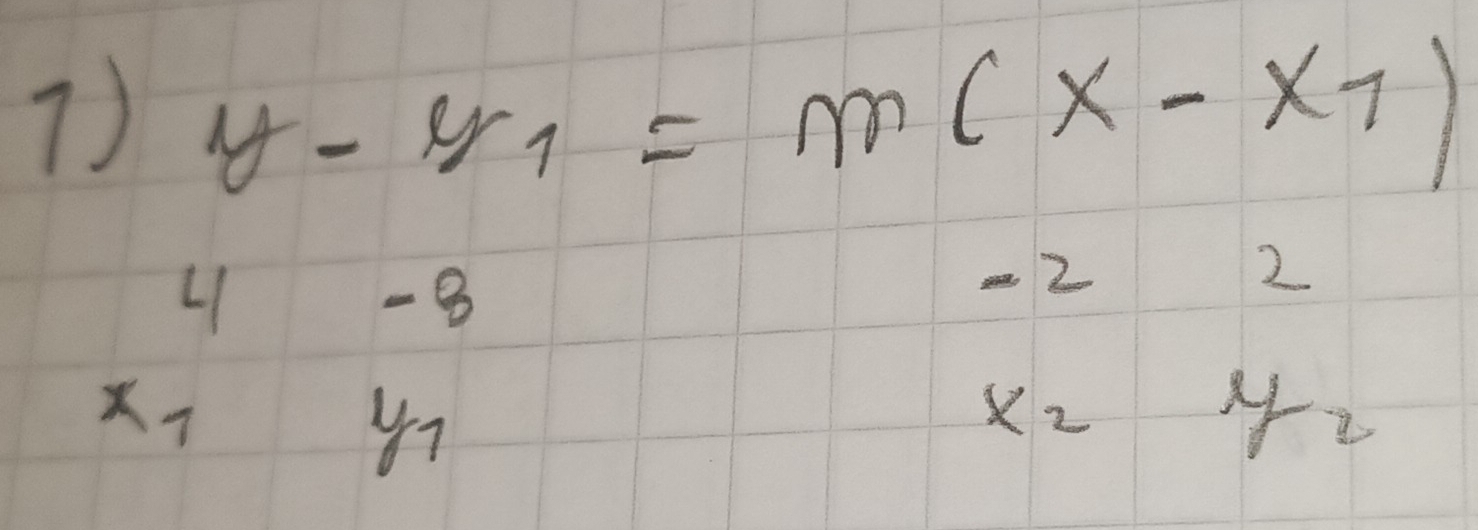 1) y - y1 = m(x - x1)
4 -8 -2 2
x1 y1 x2 y2